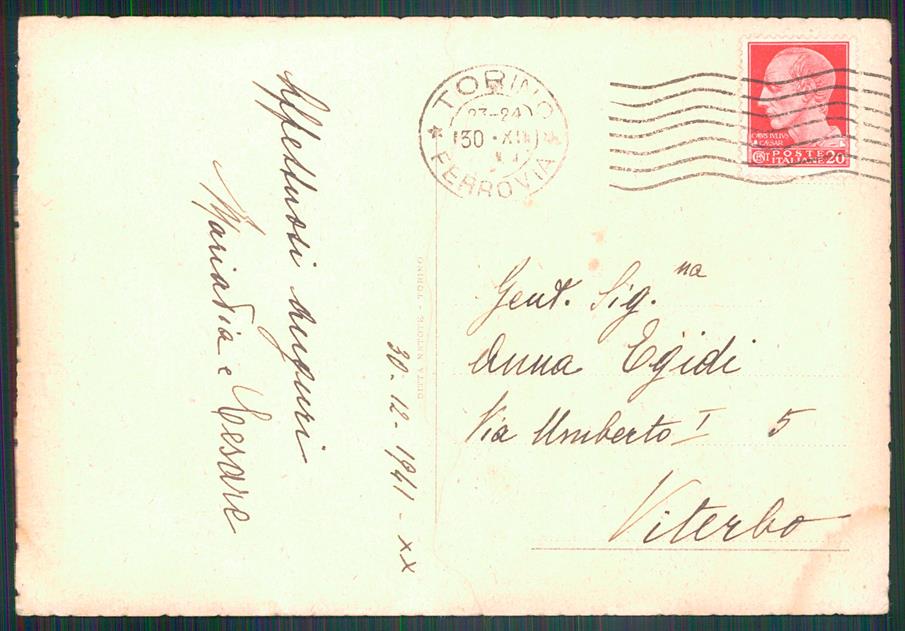 Affettuosi Auguri
Mariadia e Cesare
30-12-1941-XX
DITTA NETOTE - TORINO
TORINO
23-24
30 · XII
FERROVIA
CAIVS IVLIVS
CAESAR
POSTE
ITALIANE 20
Gent. Sig.na
Anna Egidi
Via Umberto I 5
Viterbo